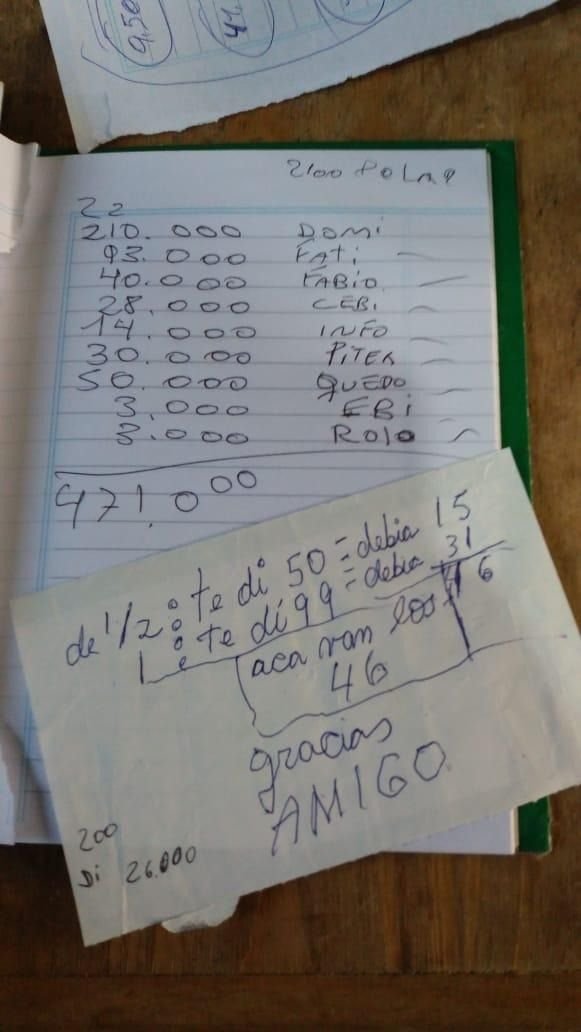 9.50
2100 POLAR
22
210.000 DOMI
93.000 FATI
40.000 FABIO
28.000 CEBI
14.000 INFO
30.000 PITER
50.000 QUEDO
3.000 EBI
3.000 ROLO
471.000
de 1/2: te di 50 = debia 15
1: te di 99 = debia 31
46
aca van los
46
gracias
AMIGO
200
Di 26.000